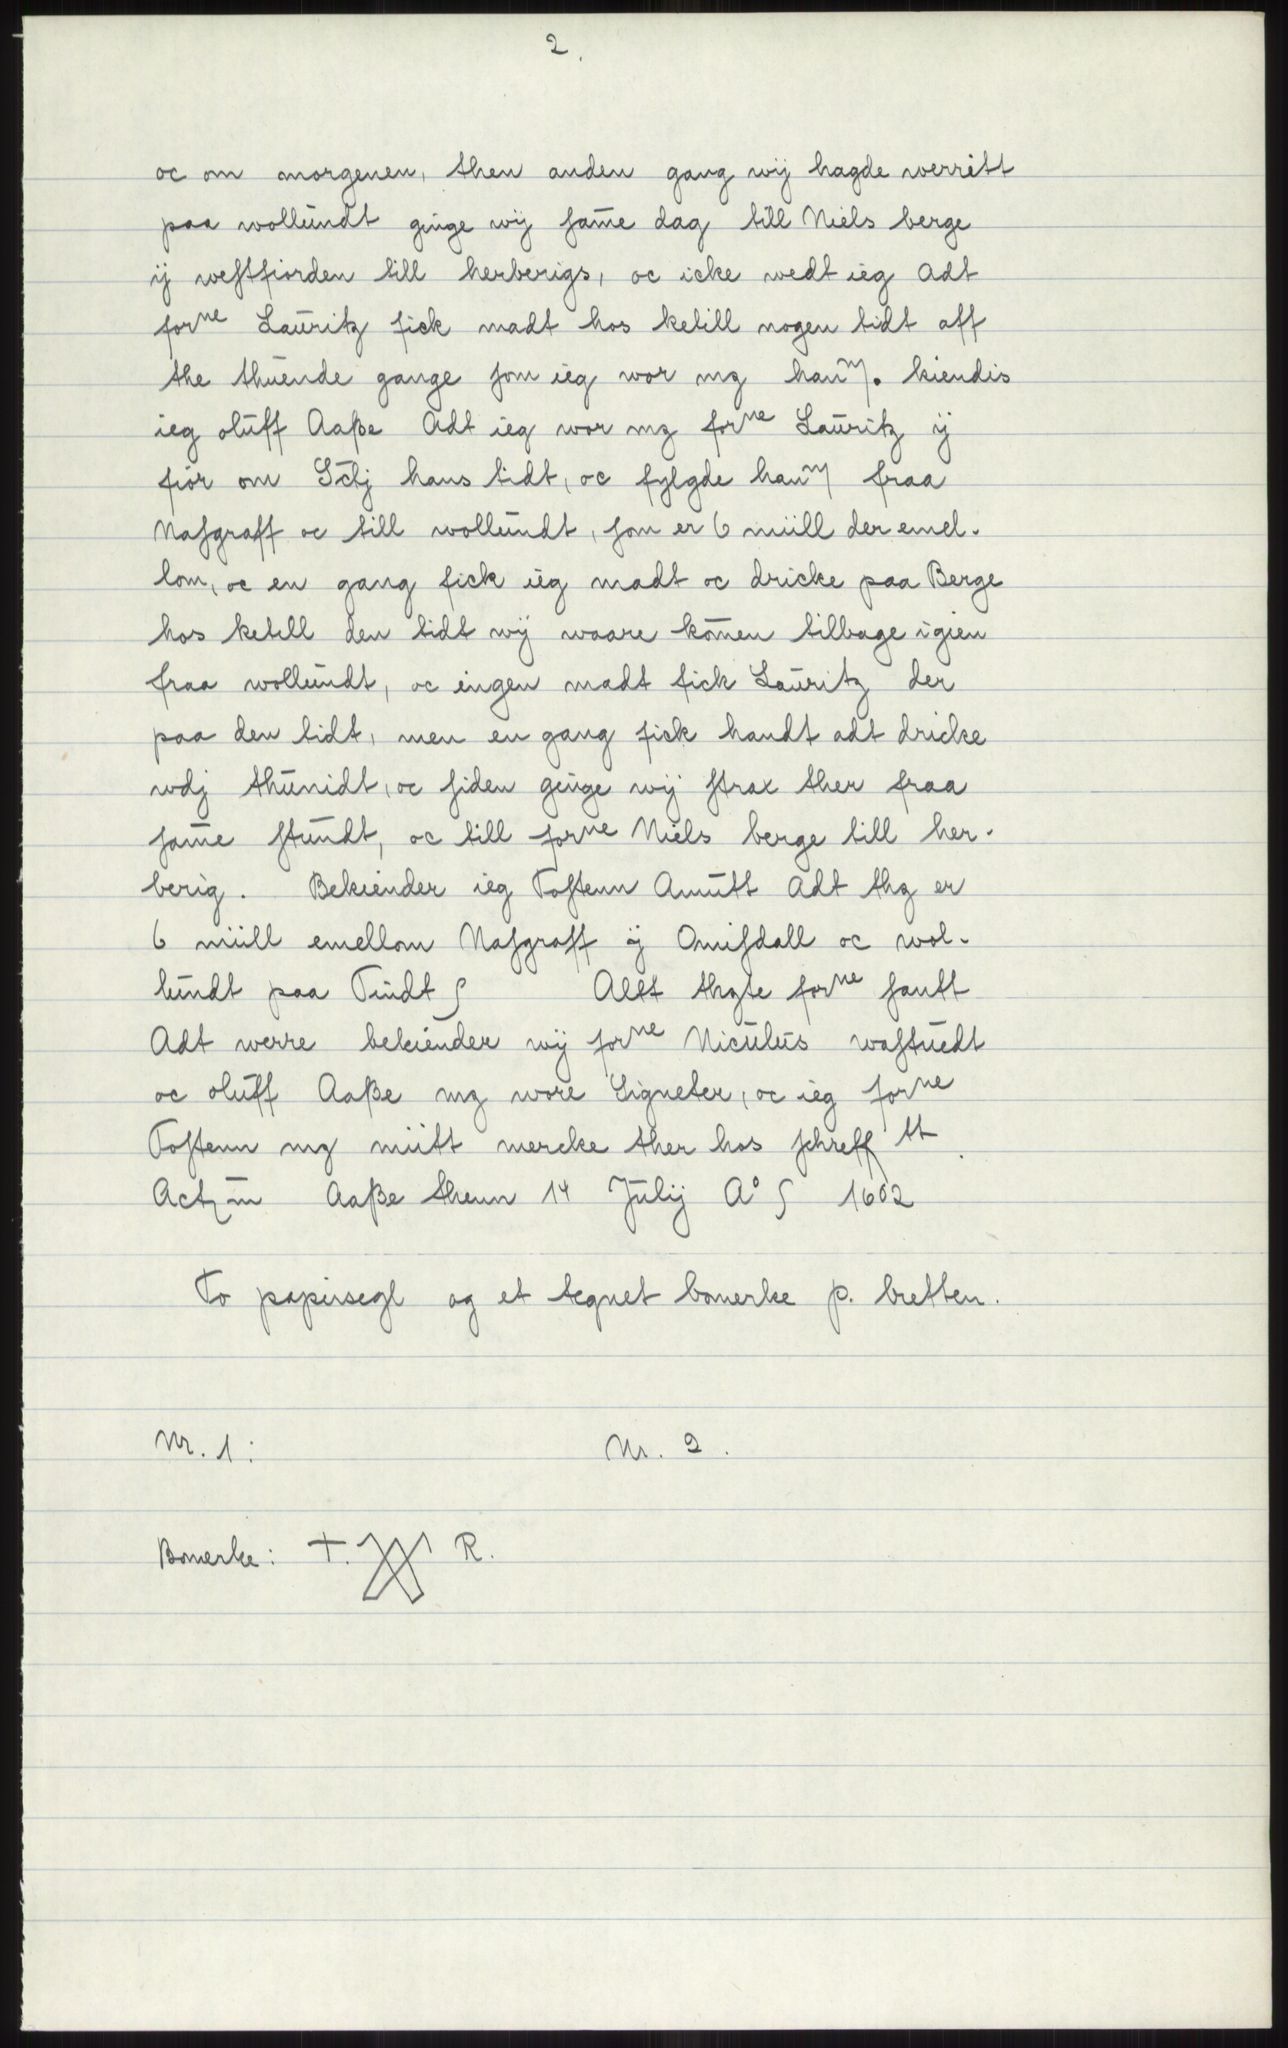 2.
oc om morgenen, then anden gang wij hagde werritt
paa wollundt ginge wij same dag till Niels berge
ij westfiorden till herberigs, oc icke wedt ieg Adt
forne Lauritz fick madt hos ketill nogen tidt aff
the thuende gange som ieg wor mz hanm. kiendis
ieg oluff Aaße Adt ieg wor mz forne Lauritz ij
fior om Sctj hans tidt, oc fylgde hanm fraa
Nasgraff oc till wollundt, som er 6 miill der emel-
lom, oc en gang fick ieg madt oc dricke paa Berge
hos ketill den tidt wij waare komen tilbage igien
fraa wollundt, oc ingen madt fick Lauritz der
paa den tidt, men en gang fick handt adt dricke
wdj thunidt, oc siden ginge wij strax ther fraa
same stundt, oc till forne Niels berge till her-
berig. Bekiender ieg Tostenn Amutt Adt thz er
6 miill emellom Nasgraff ij Omisdall oc wol-
lundt paa Tindt ʃ Allt thzte forne santt
Adt werre bekiender wij forne Niculus wastuedt
oc oluff Aaße mz wore Signeter, oc ieg forne
Tostenn mz miitt mercke ther hos schreff tt.
Actzm Aaße thenn 14 Julij A° ʃ 1602
To papirsegl og et tegnet bomerke p. bretten.
Nr. 1: Nr. 2.
Bomerke: T. R.